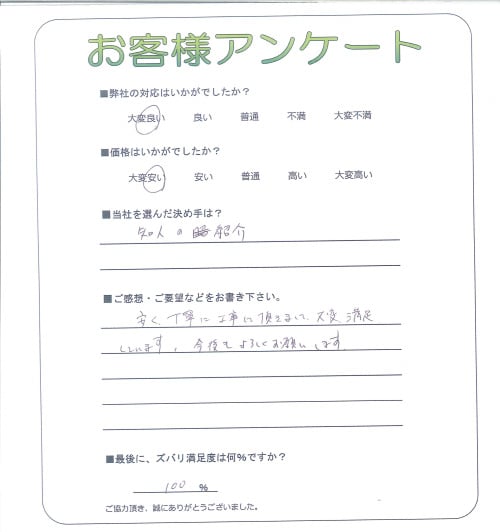 お客様アンケート
■弊社の対応はいかがでしたか？
大変良い 良い 普通 不満 大変不満
■価格はいかがでしたか？
大変安い 安い 普通 高い 大変高い
■当社を選んだ決め手は？
知人の紹介
■ご感想・ご要望などをお書き下さい。
安く、丁寧に工事に頂きまして、大変、満足
しています。今後もよろしくお願いします。
■最後に、ズバリ満足度は何％ですか？
100 ％
ご協力頂き、誠にありがとうございました。